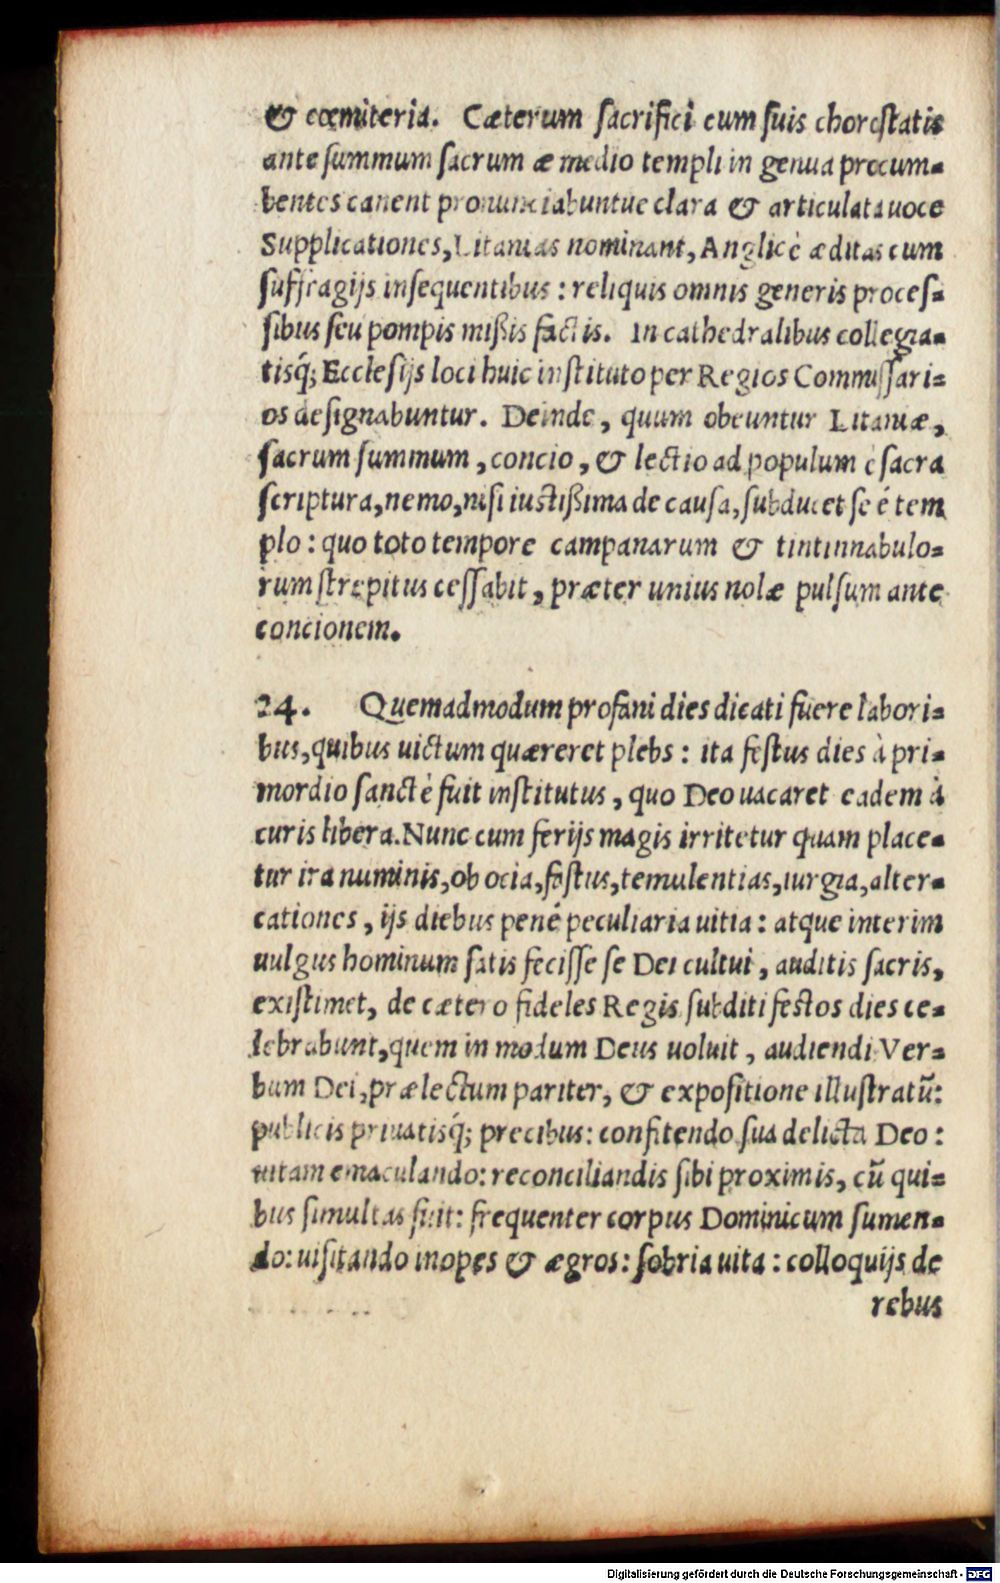 & cœmiteria. Cæterum sacrifici cum suis chorostatis
ante summum sacrum æ medio templi in genua procum-
bentes canent pronunciabuntue clara & articulata uoce
Supplicationes, Litanias nominant, Anglicè æditas cum
suffragijs insequentibus : reliquis omnis generis proces-
sibus seu pompis mißis factis. In cathedralibus collegia-
tisq́; Ecclesijs loci huic instituto per Regios Commissari-
os designabuntur. Deinde, quum obeuntur Litaniæ,
sacrum summum, concio, & lectio ad populum è sacra
scriptura, nemo, nisi iustißima de causa, subducet se é tem
plo : quo toto tempore campanarum & tintinnabulo-
rum strepitus cessabit, præter unius nolæ pulsum ante
concionem.
24. Quemadmodum profani dies dicati fuere labori-
bus, quibus uictum quæreret plebs : ita festus dies à pri-
mordio sanctè fuit institutus, quo Deo uacaret eadem à
curis libera. Nunc cum ferijs magis irritetur quam place-
tur ira numinis, ob ocia, fastus, temulentias, iurgia, alter-
cationes, ijs diebus pené peculiaria uitia : atque interim
uulgus hominum satis fecisse se Dei cultui, auditis sacris,
existimet, de cætero fideles Regis subditi festos dies ce-
lebrabunt, quem in modum Deus uoluit, audiendi Ver-
bum Dei, prælectum pariter, & expositione illustratū:
publicis priuatisq́; precibus: confitendo sua delicta Deo :
uitam emaculando: reconciliandis sibi proximis, cū qui-
bus simultas fuit: frequenter corpus Dominicum sumen-
do: uisitando inopes & ægros: sobria uita : colloquijs de
rebus
Digitalisierung gefördert durch die Deutsche Forschungsgemeinschaft - DFG